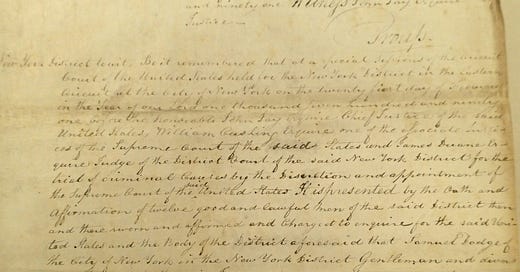 and ninety one Witness John Jay Esquire
Justice
New York District Court. Be it remembered that at a special Sessions of the Circuit
Court of the United States held for the New York District in the Eastern
Circuit at the City of New York on the twenty first day of
in the Year of our Lord one thousand seven hundred and ninety
one before the honorable John Jay Esquire Chief Justice of the said
United States, William Cushing Esquire one of the associate Justi
ces of the Supreme Court of the said States and James Duane Es
quire Judge of the District Court of the said New York District for the
trial of criminal Causes by the Discretion and appointment of
the Supreme Court of the said United States It is presented by the Oath and
Affirmation of twelve good and lawful men of the said District then
and there sworn and affirmed and Charged to enquire for the said Uni
ted States and the Body of the District aforesaid that Samuel Dodge of
the City of New York in the New York District Gentleman and divers